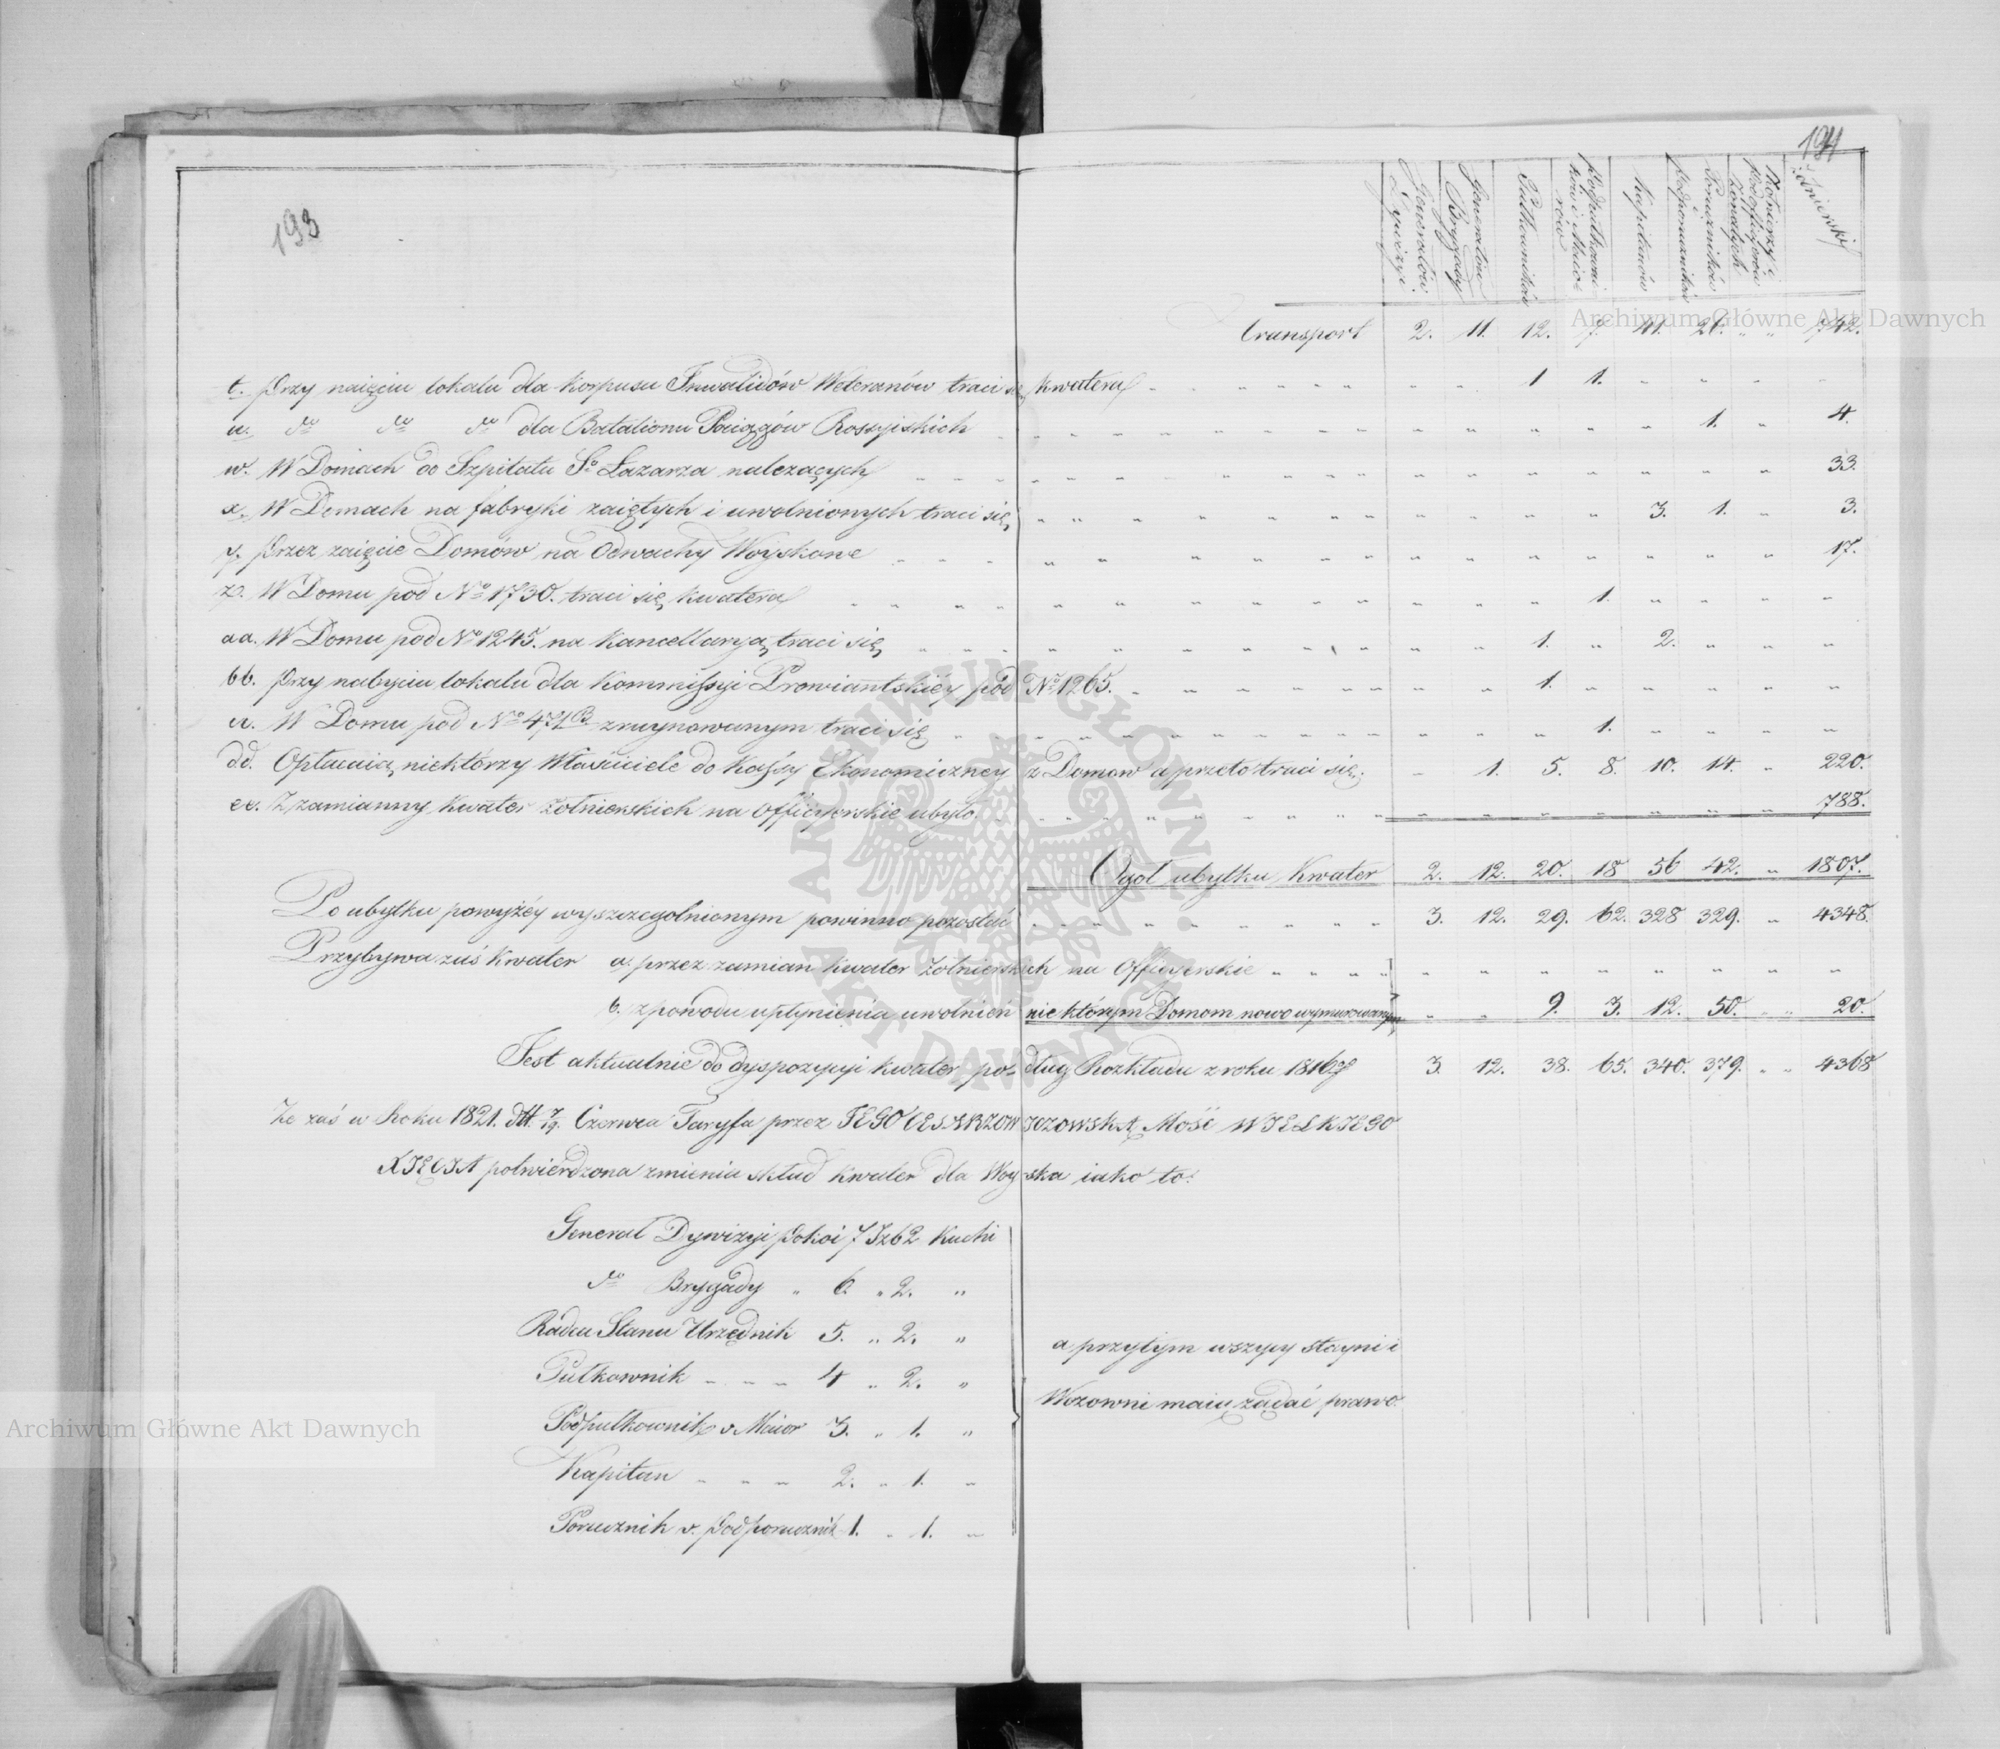 193
194
Generałów Dywizyi.
Generałów Brygady
Pułkowników
Podpułkowników i Maiorów
Kapitanów
Poruczników i Podporuczników
Żołnierzy i Podofficyerów Żonatych
Żołnierski
Transport 2. 11. 12. 7. 41. 26. " " 742.
t. Przy naięciu lokalu dla Korpusu Inwalidów Weteranów traci się Kwatera 1 1.
u. do do do dla Batalionu Pociągów Rossyiskich 1. 4.
w. W Domach do Szpitalu So Łazarza należących 33.
x. W Domach na fabryki zaiętych i uwolnionych traci się 3. 1. 3.
y. Przez zaięcie Domów na Odwachy Woyskowe 17.
z. W Domu pod No 1730. traci się kwatera 1.
aa. W Domu pod No 1245. na Kancellaryą traci się 1. 2.
bb. Przy nabyciu lokalu dla Kommissyi Prowiantskiéy pod No 1265. 1.
cc. W Domu pod No 471 B. zruynowanym traci się 1.
dd. Opłacaią niektórzy Właściciele do Kassy Ekonomiczney z Domow a przeto traci się. 1. 5. 8. 10. 14. 220.
ee. Z zamianny Kwater żołnierskich na Officyerskie ubyło. 788.
Ogół ubytku Kwater 2. 12. 20. 18 56 42. " 1807.
Po ubytku powyżéy wyszczegolnionym powinno pozostać 3. 12. 29. 62. 328 329. " 4348.
Przybywa zaś Kwater a. przez zamian Kwater żołnierskich na Officyerskie
b. z powodu upłynienia uwolnień niektórym Domom nowo wymurowanym 9. 3. 12. 50. 20.
Jest aktualnie do dyspozycyi kwater podług Rozkładu z roku 1816/7 3. 12. 38. 65. 340. 379. 4368
Że zaś w Roku 1821. 7/19. Czerwca Taryfa przez JEGO CESARZOWICZOWSKĄ Mość WIELKIEGO
XIĘCIA potwierdzona zmienia skład Kwater dla Woyska iako to:
Generał Dywizyi Pokoi 7 Izb 2 Kuchi
do Brygady " 6. " 2. "
Radca Stanu Urzędnik 5. " 2. "
Pułkownik 4 " 2. "
Podpułkownik v Maior 3. " 1. "
Kapitan 2. " 1. "
Porucznik v. Podporucznik 1. " 1. "
a przytym wszyscy Stayni i
Wozowni maią żądać prawo.
Archiwum Główne Akt Dawnych
Archiwum Główne Akt Dawnych
ARCHIWUM GŁÓWNE AKT DAWNYCH